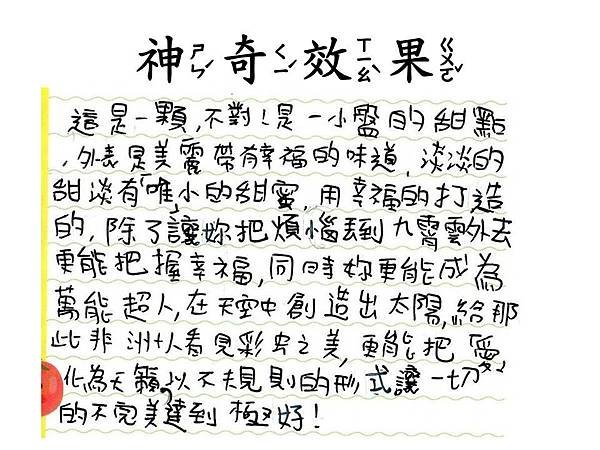 神ㄕㄣˊ奇ㄑㄧˊ效ㄒㄧㄠˋ果ㄍㄨㄛˇ
這是一顆,不對!是一小盤的甜點
,外表是美麗帶有幸福的味道,淡淡的
甜淡有「唯小的甜蜜,用幸福的打造
的,除了讓妳把煩惱丟到九霄雲外去
更能把握幸福,同時妳更能成為
萬能超人,在天空中創造出太陽,給那
此非洲人看見彩虫之美,更能把愛
化為天籟,以不夫見則的形式讓一切
的不完美達到極好!